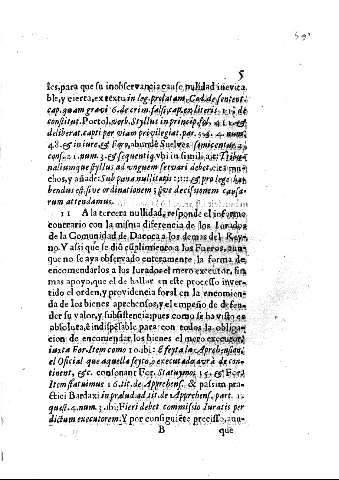 5
les, para que su inobservancia cause nulidad inevita-
ble, y cierta, ex textu in leg. prolatam, Cod. de sentent.
cap. quam gravi 6. de crim. fals. cap. ex literis. 11. de
constitut. Portol. verb. Styllus in princip. fol. 411. &
deliberat. capti per viam privilegiat. par. 5. q. 4. num.
48. & in iure, & Foro, abundè Suelves semicentur. 2.
cons. 21. num. 3. & sequentiq. vbi in simili, ait: Tribu-
naliumque styllus ad vnguem servari debet, cita mu-
chos, y añade: Sub pœna nullitatis :::: & pro lege ha-
bendus est, sive ordinationem, sive decisionem causa-
rum attendamus.
11 A la tercera nullidad, responde el informe
contrario con la misma diferencia de los Iurados
de la Comunidad de Daroca à los demas del Rey-
no. Y assi que se diò cumplimento à los Fueros, aun-
que no se aya observado enteramente la forma de
encomendarlos à los Iurados el mero executor, sin
mas apoyo, que el de hallar en este processo inver-
tido el orden, y providencia foral en la encomien-
da de los bienes aprehensos, y el empeño de defen-
der su valor, y subsistencia; pues como se ha visto es
absoluta, è indispésable para con todos la obliga-
cion de encomendar los bienes el mero executor,
iuxta For. Item como 10. ibi: E feyta la Aprehension,
el Oficial que aquella feyto, o executado avrà de con-
tinent, &c. consonant For. Statuymos 15. & For.
Item statuimus 16. tit. de Aprehens. & passim pra-
ctici Bardaxi in præludad tit. de Apprehens. part. 1.
quest. 4. num. 3. ibi: Fieri debet commissio Iuratis per
dictum executorem. Y por consiguiéte precisso, aun-
B que